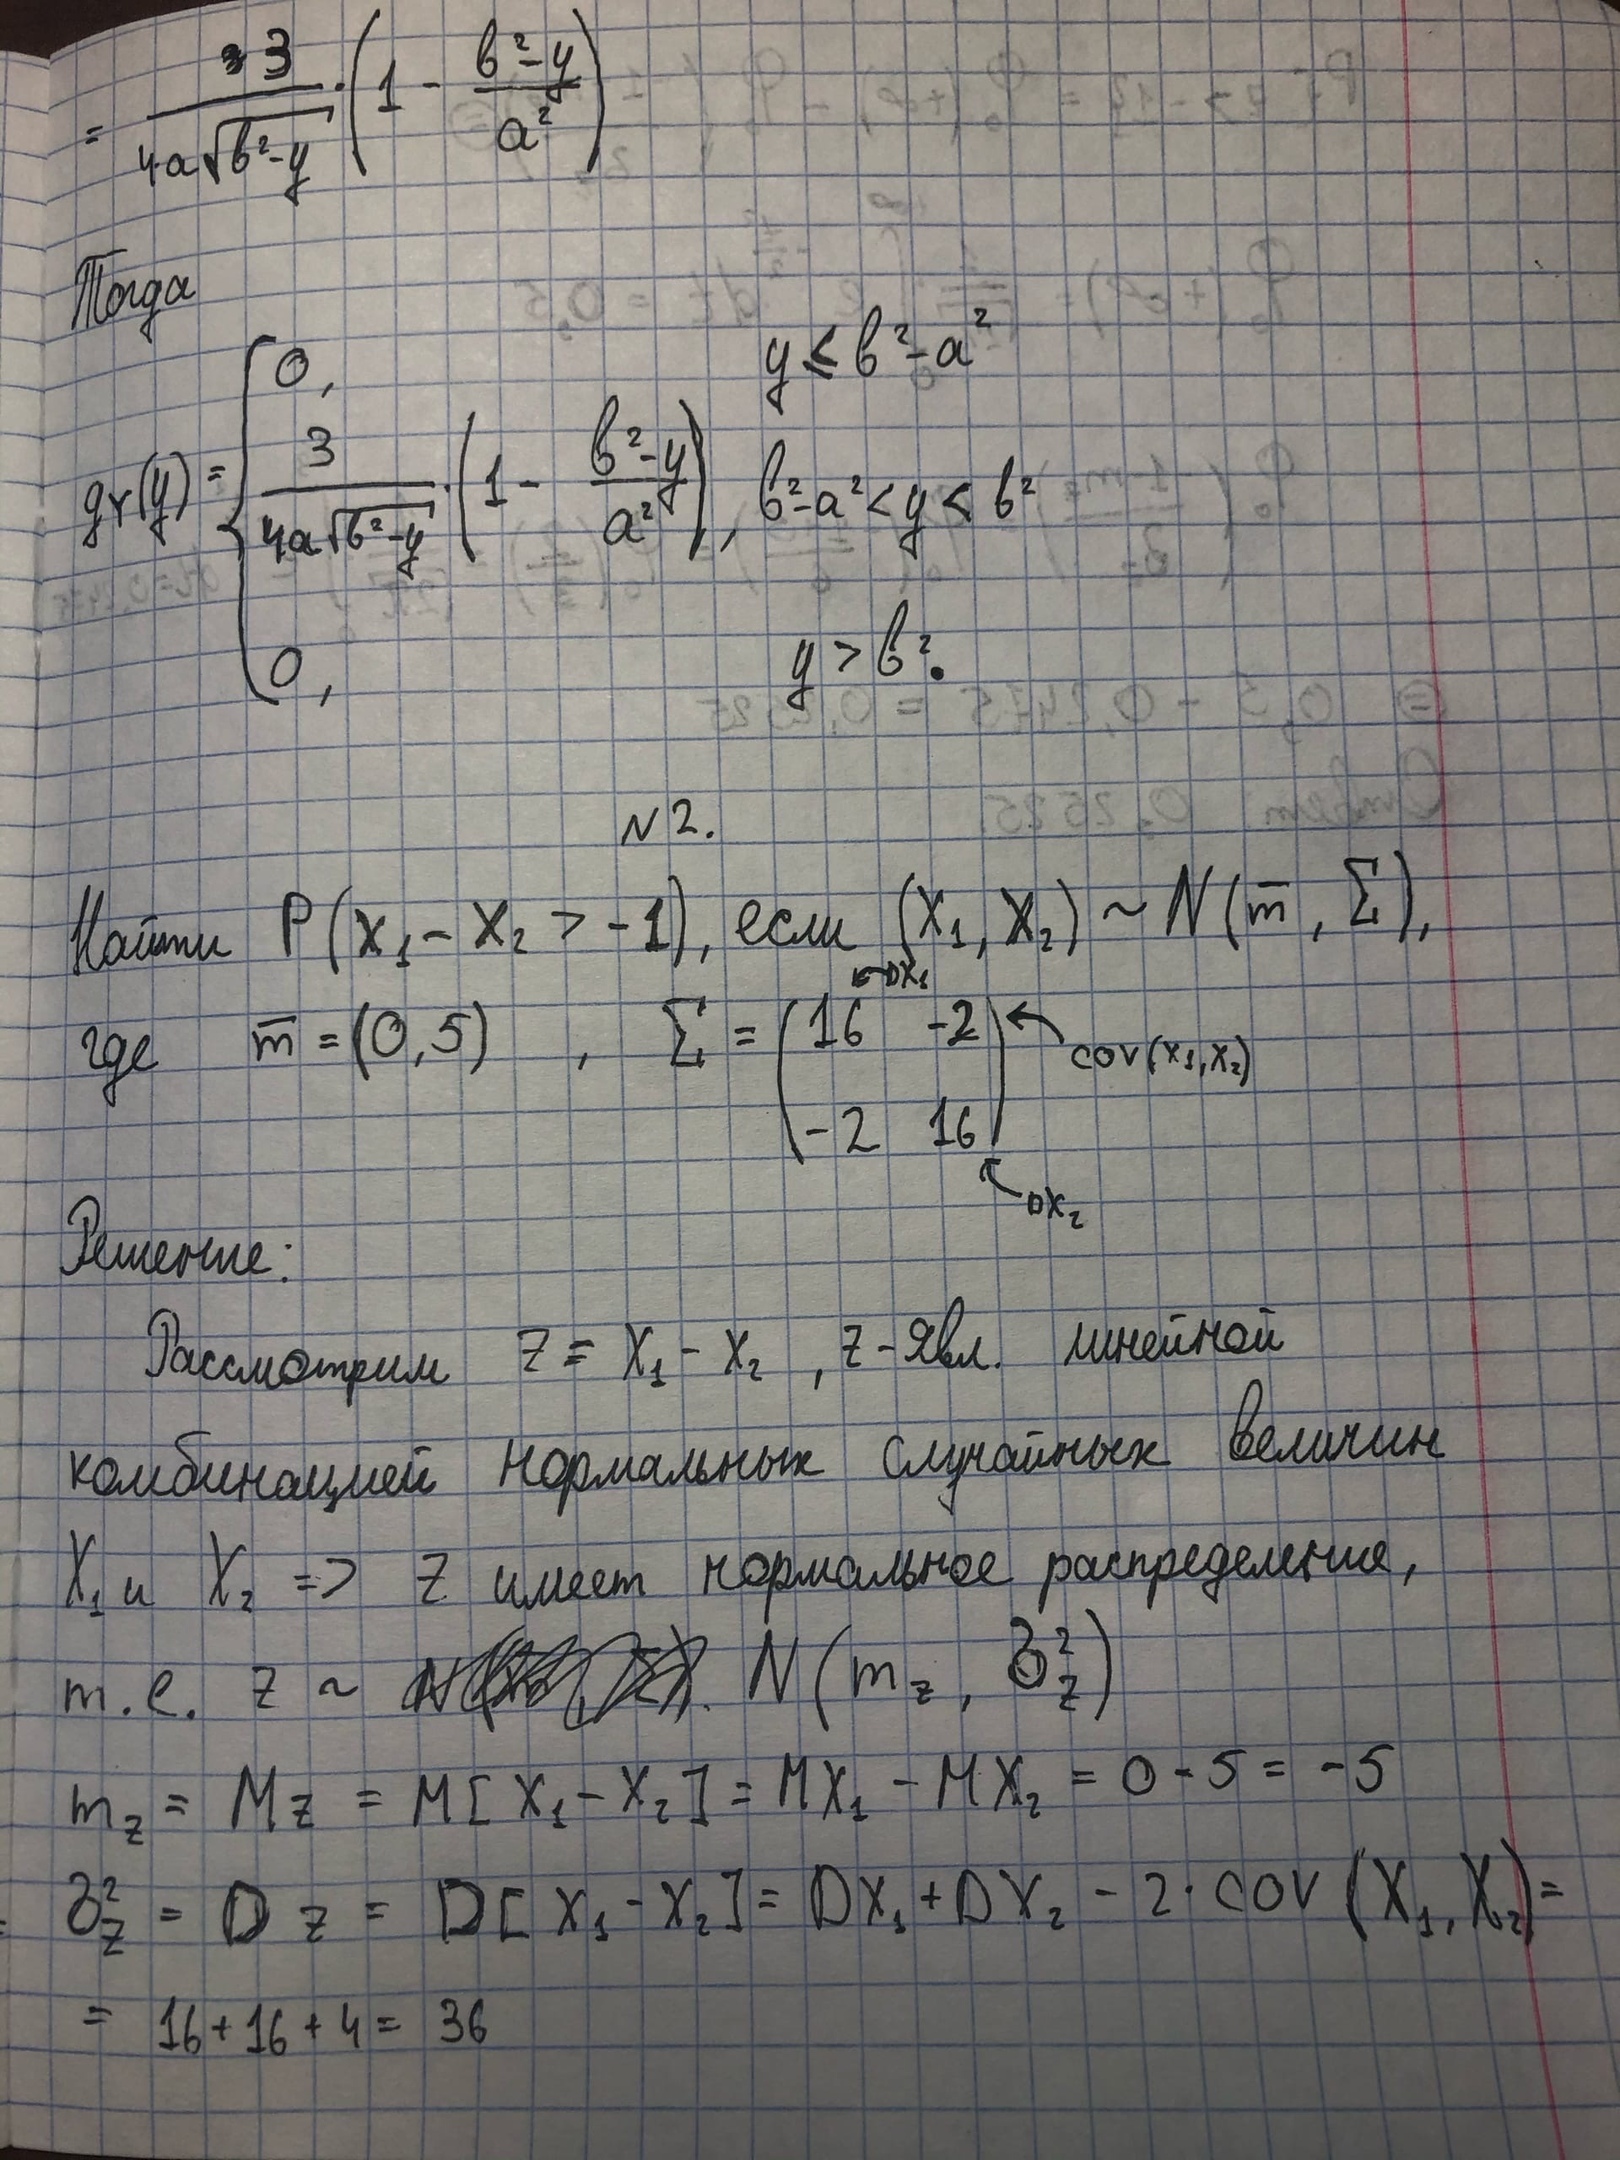 = 3/(4a√(в²-y)) · (1 - (в²-y)/a²)
Тогда
g_Y(y) = { 0, y ≤ в²-a²
3/(4a√(в²-y)) · (1 - (в²-y)/a²), в²-a² < y < в²
0, y > в².
N2.
Найти P(X₁ - X₂ > -1), если (X₁, X₂) ~ N(m̅, Σ),
где m̅ = (0,5) , Σ = (16 -2
-2 16)
DX₁
cov(X₁,X₂)
DX₂
Решение:
Рассмотрим Z = X₁ - X₂ , Z - явл. линейной
комбинацией нормальных случайных величин
X₁ и X₂ => Z имеет нормальное распределение,
т.е. Z ~ N(m_z, σ²_z)
m_z = Mz = M[X₁ - X₂] = MX₁ - MX₂ = 0 - 5 = -5
σ²_z = Dz = D[X₁ - X₂] = DX₁ + DX₂ - 2·cov(X₁, X₂) =
= 16 + 16 + 4 = 36